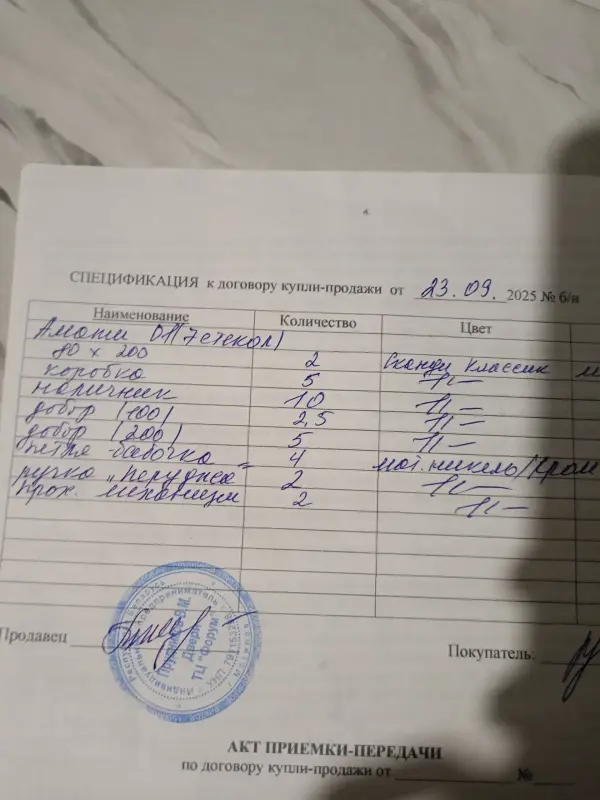 СПЕЦИФИКАЦИЯ к договору купли-продажи от 23.09. 2025 № б/н
Наименование Количество Цвет
Амати 01(7 стекол)
80 х 200 2 Сканди Классик
коробка 5 -//-
наличник 10 -//-
добор (100) 2,5 -//-
добор (200) 5 -//-
петля бабочка 4 мат. никель/хром
ручка "Перуджа" 2 -//-
прох. механизм 2 -//-
Индивидуальный предприниматель
В.М.
Двери
ТЦ "Форум"
Продавец
Покупатель:
АКТ ПРИЕМКИ-ПЕРЕДАЧИ
по договору купли-продажи от №